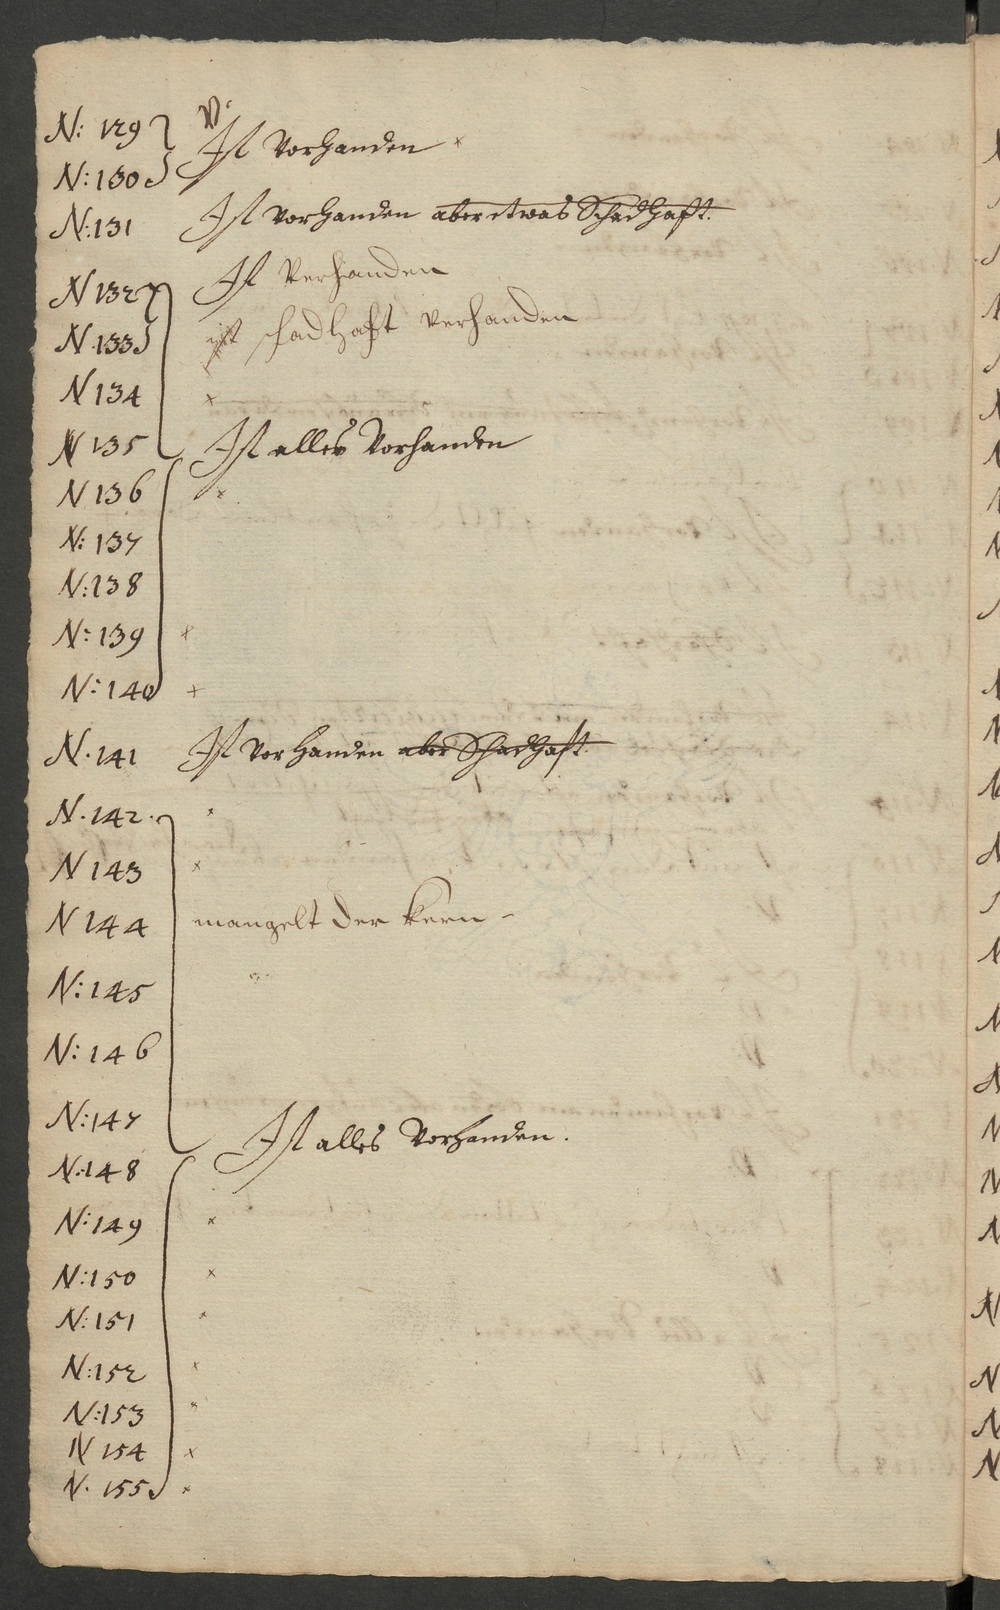 N: 129
N: 130 Ist Vorhanden ×
N: 131 Ist vorhanden aber etwas Schadhafft.
N 132 Ist Verhanden
N. 133 ist schadhafft verhanden
N 134 ×
N 135 Ist alles Vorhanden
N 136 ×
N: 137
N: 138
N: 139 ×
N: 140 ×
N. 141 Ist vorhanden aber Schadhafft
N. 142. ×
N 143 ×
N 144 mangelt der kern -
N: 145
N: 146
N: 147 Ist alles Vorhanden.
N: 148
N: 149 ×
N: 150 ×
N: 151 ×
N: 152 ×
N: 153 ×
N 154 ×
N. 155 ×